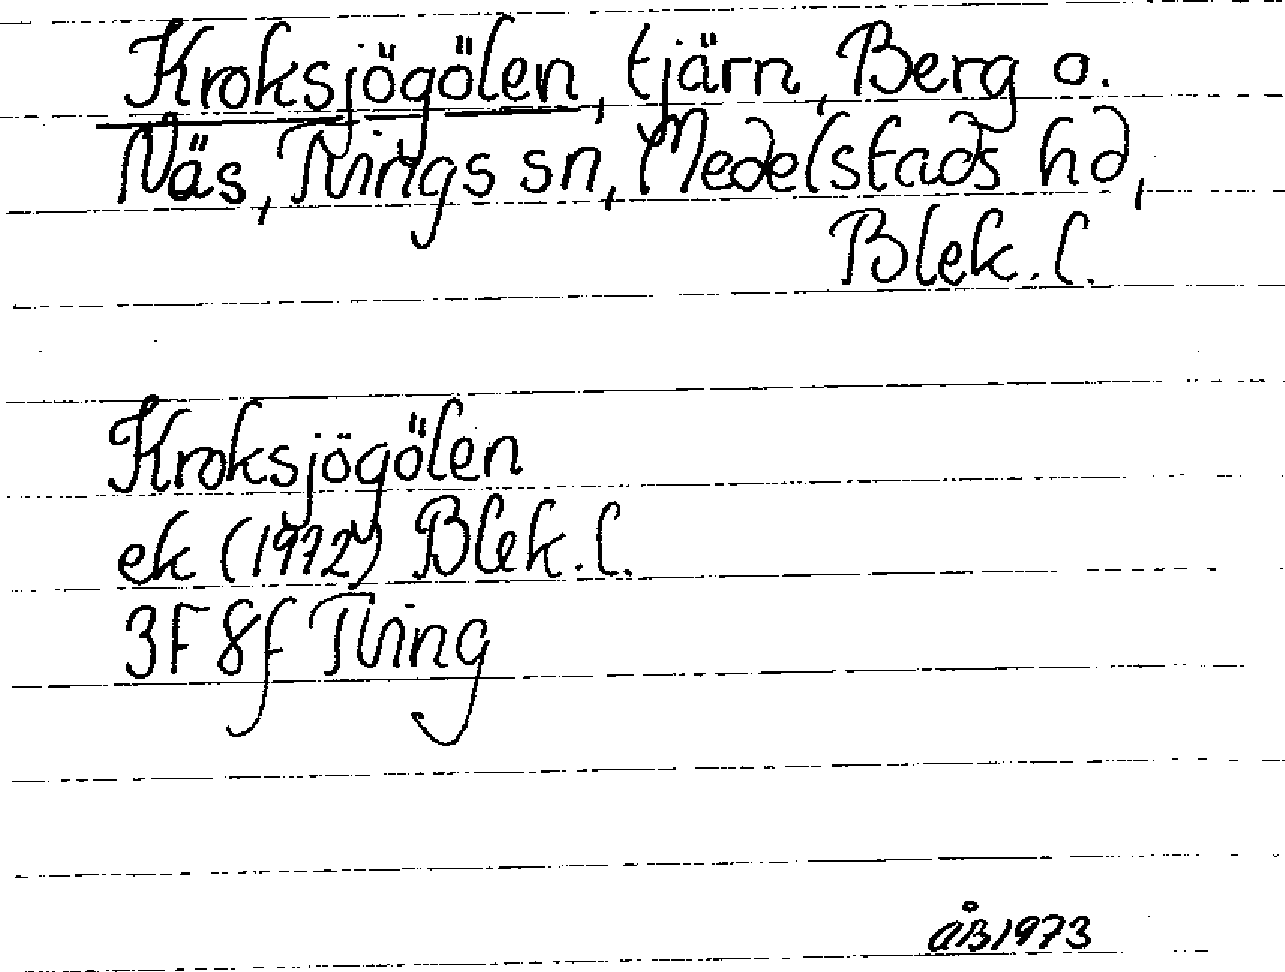 Kroksjögölen, tjärn, Berg o.
Näs, Tvings sn, Medelstads hd,
Blek. l.
Kroksjögölen
ek (1972) Blek. l.
3F 8f Tving
ÅB 1973